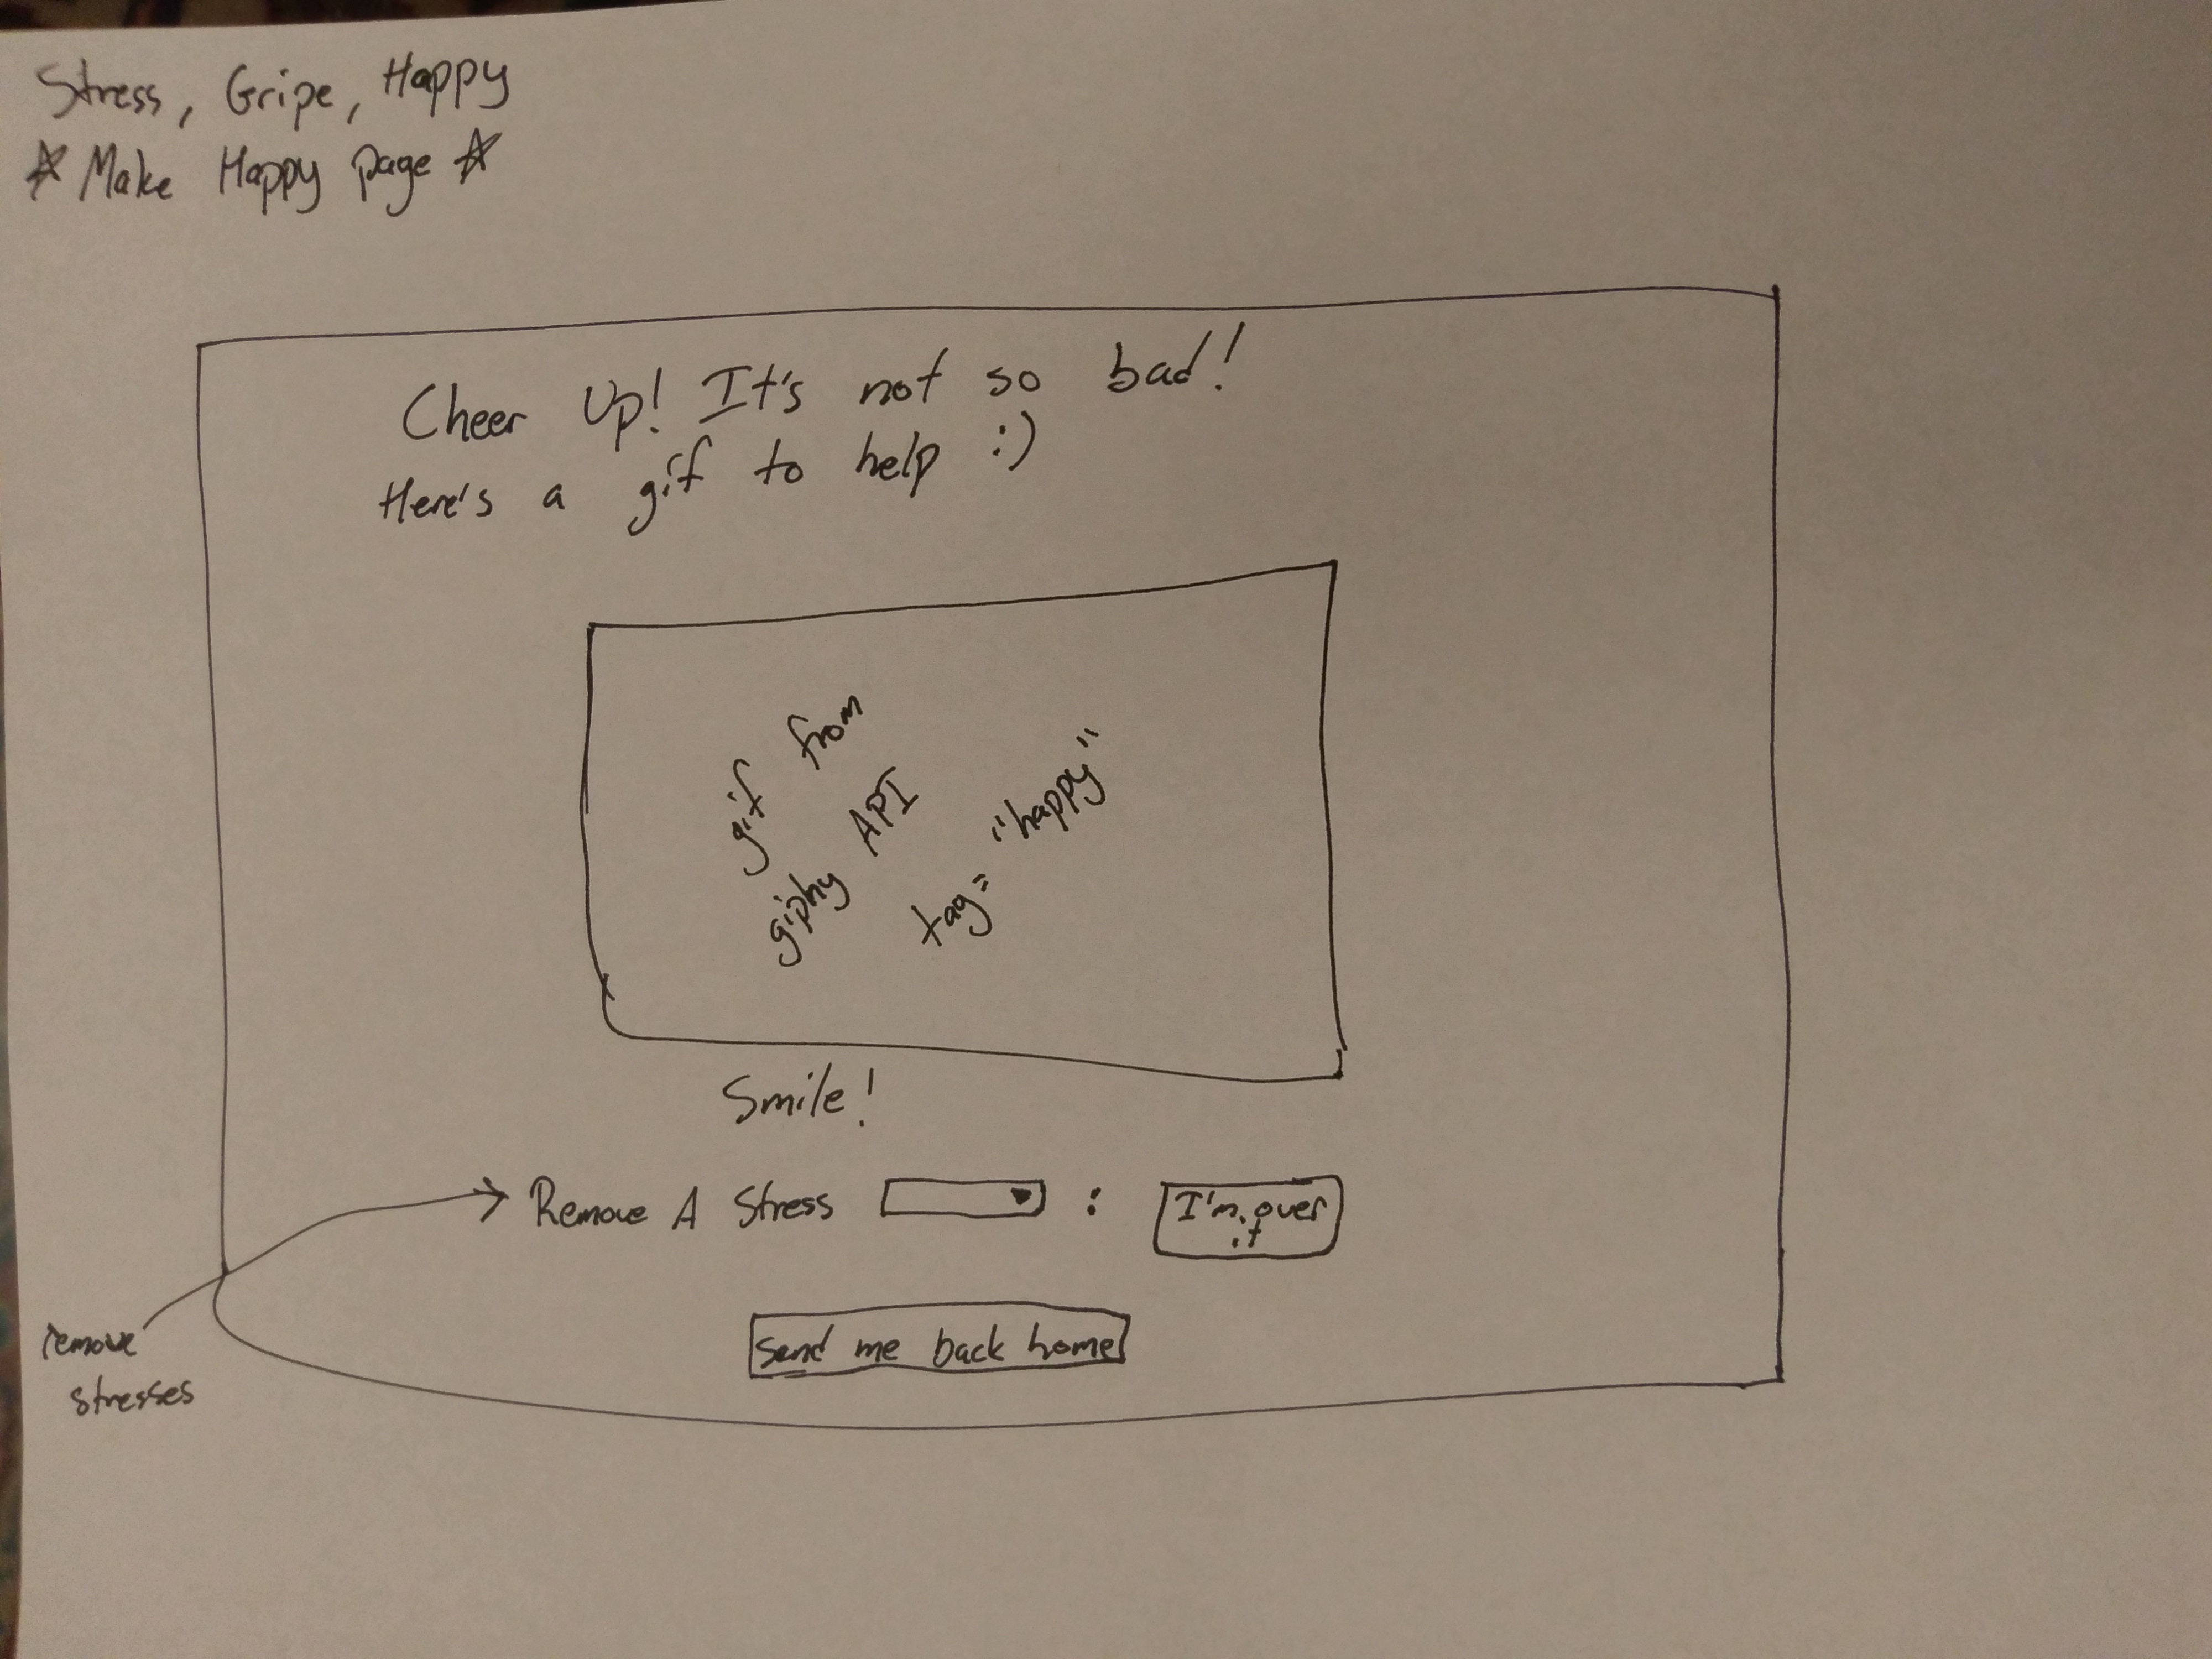 Stress, Gripe, Happy
☆ Make Happy page ☆
Cheer Up! It's not so bad!
Here's a gif to help :)
gif from
giphy API
tag= "happy"
Smile!
Remove A Stress :
I'm over
it
send me back home
remove
stresses